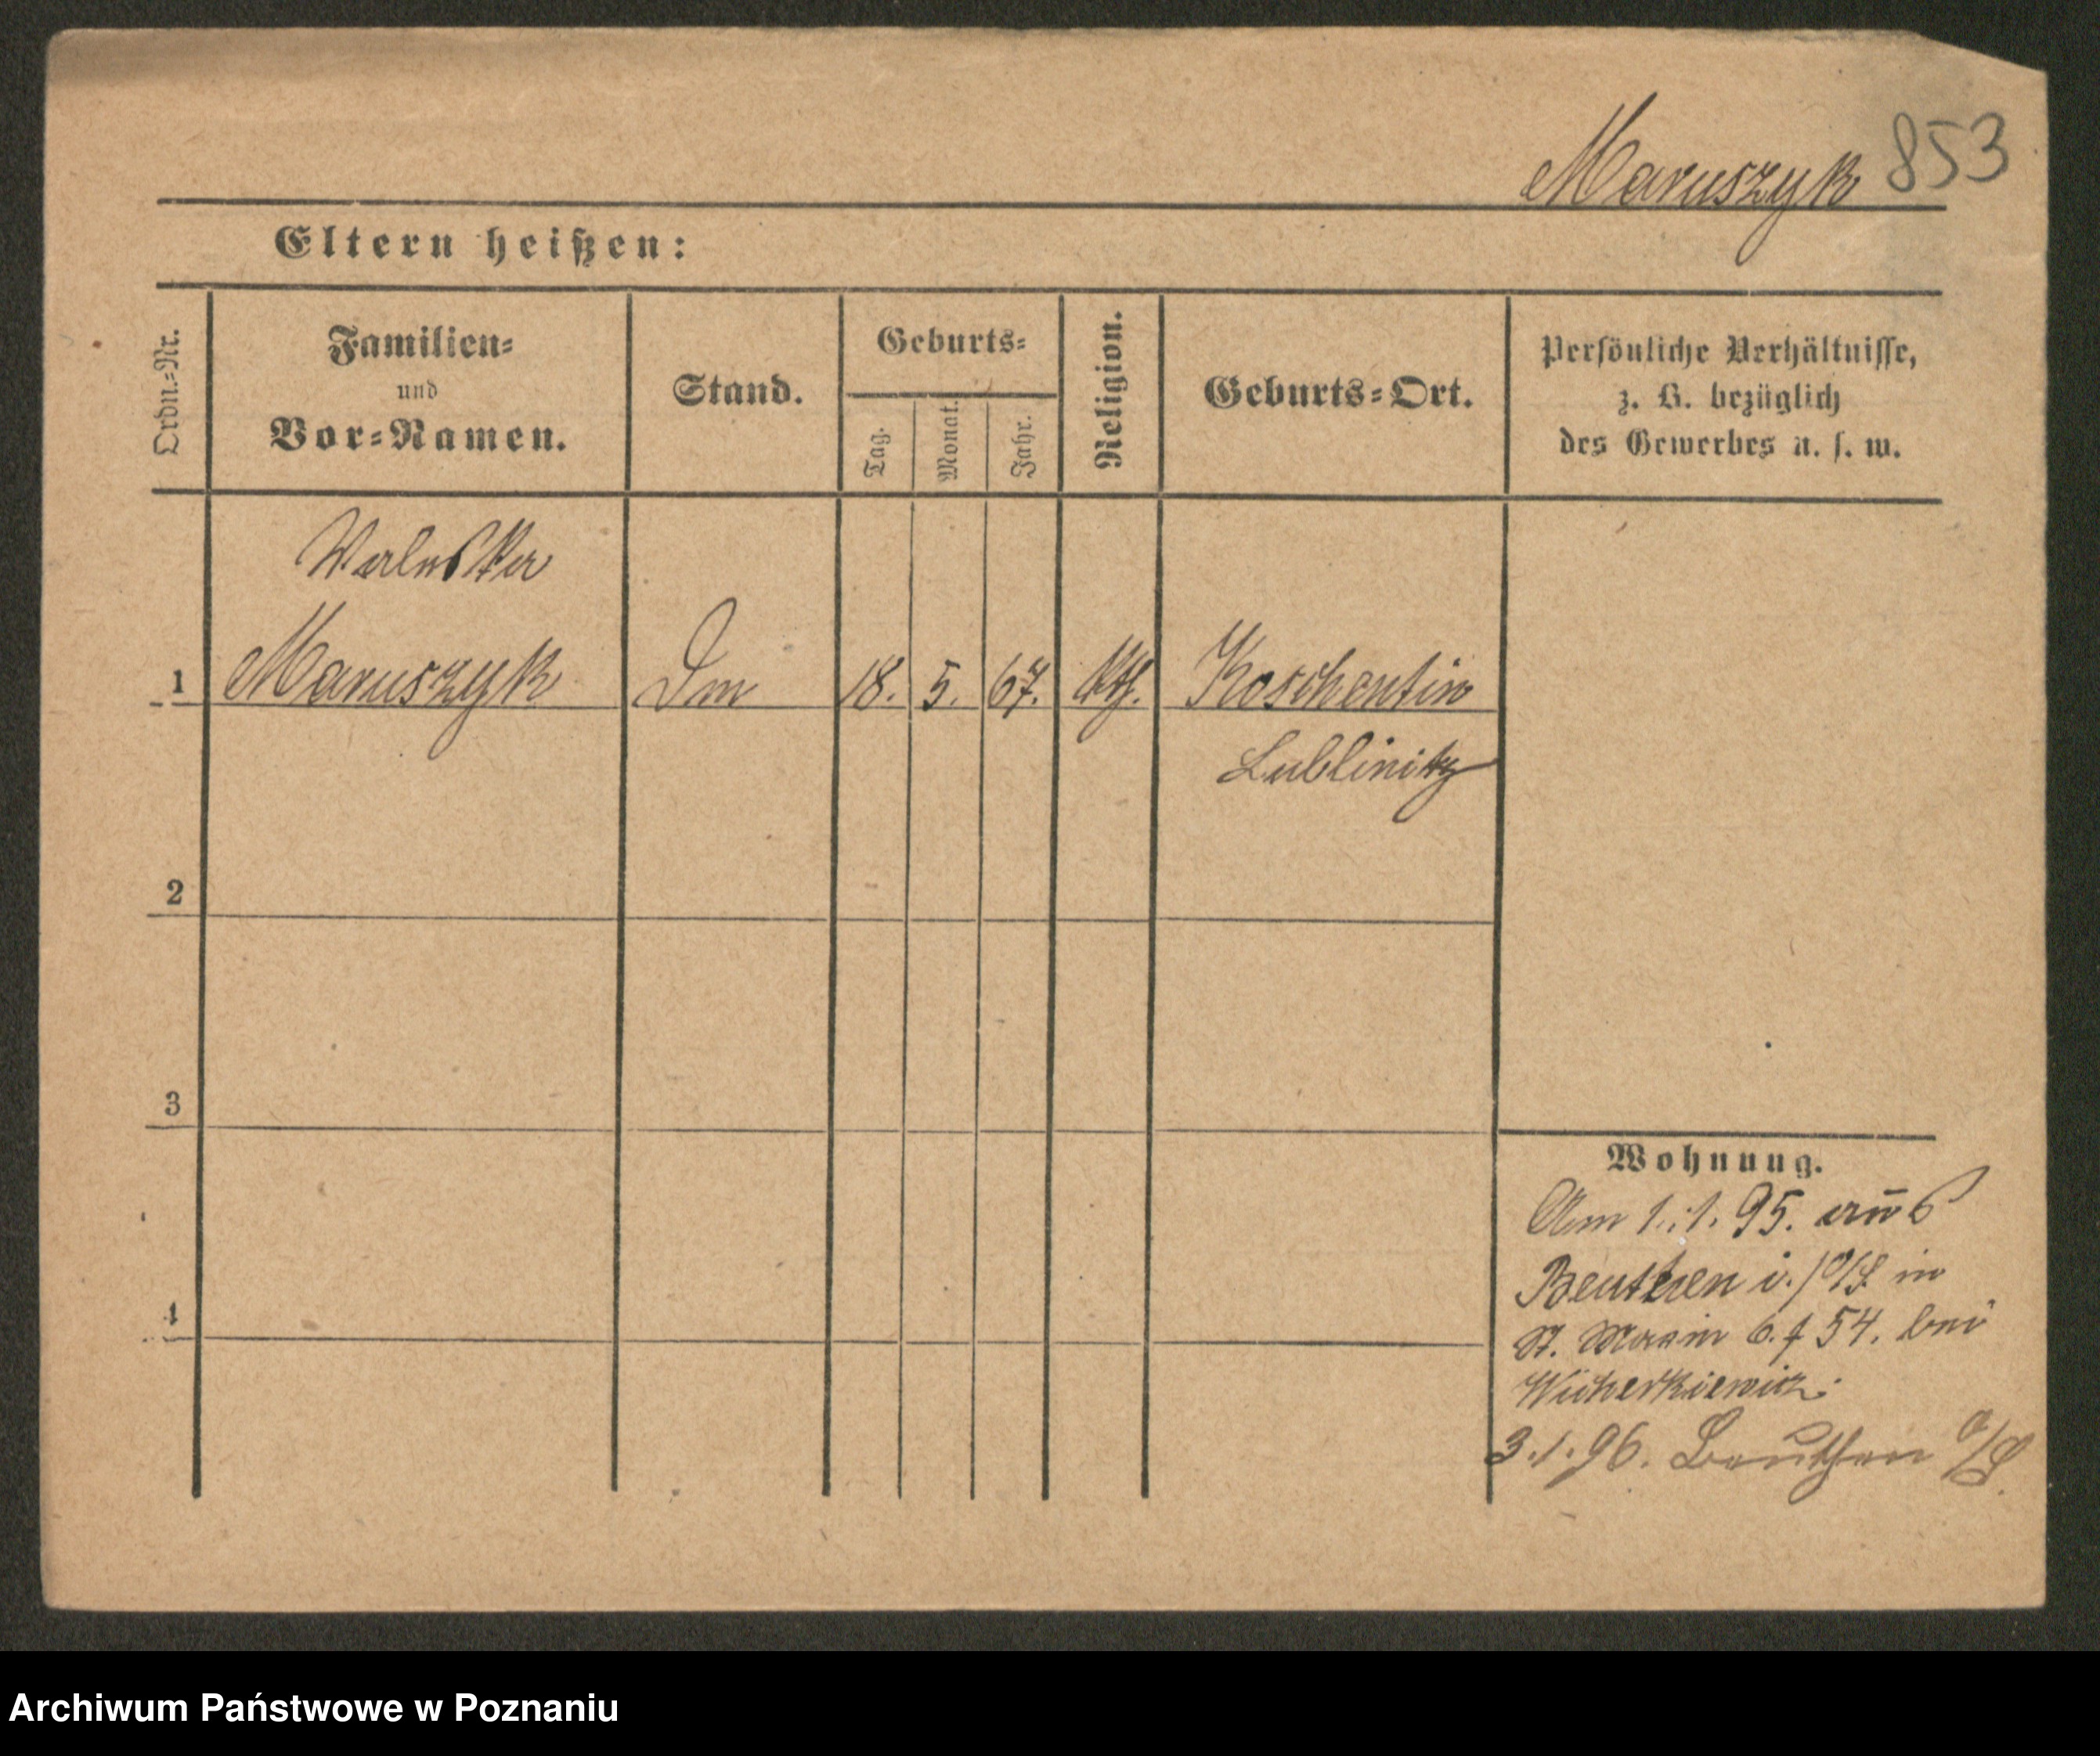 Maruszyk 853
Eltern heißen:
Ordn.-Nr.
Familien-
und
Vor-Namen.
Stand.
Geburts-
Tag.
Monat.
Jahr.
Religion.
Geburts-Ort.
Persönliche Verhältnisse,
z. B. bezüglich
des Gewerbes u. s. w.
Valeska
1 Maruszyk 18. 5. 67. kth. Koschentin
Lublinitz
2
3
4
Wohnung.
Am 1.1.95. aus
Beuthen i./O/S. in
St. Martin 54. bei
Wicherkiewicz.
3.1.96. Beuthen O/S.
Archiwum Państwowe w Poznaniu